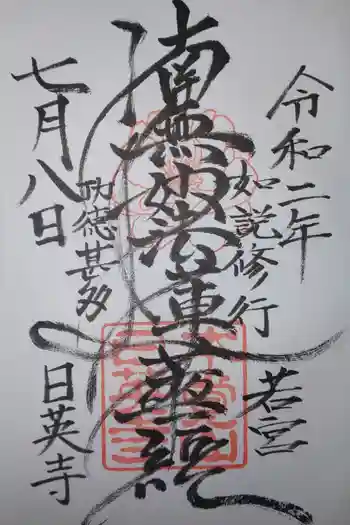 令和二年
如説修行
若宮
南無妙法蓮華経
功徳甚多
七月八日
日英寺